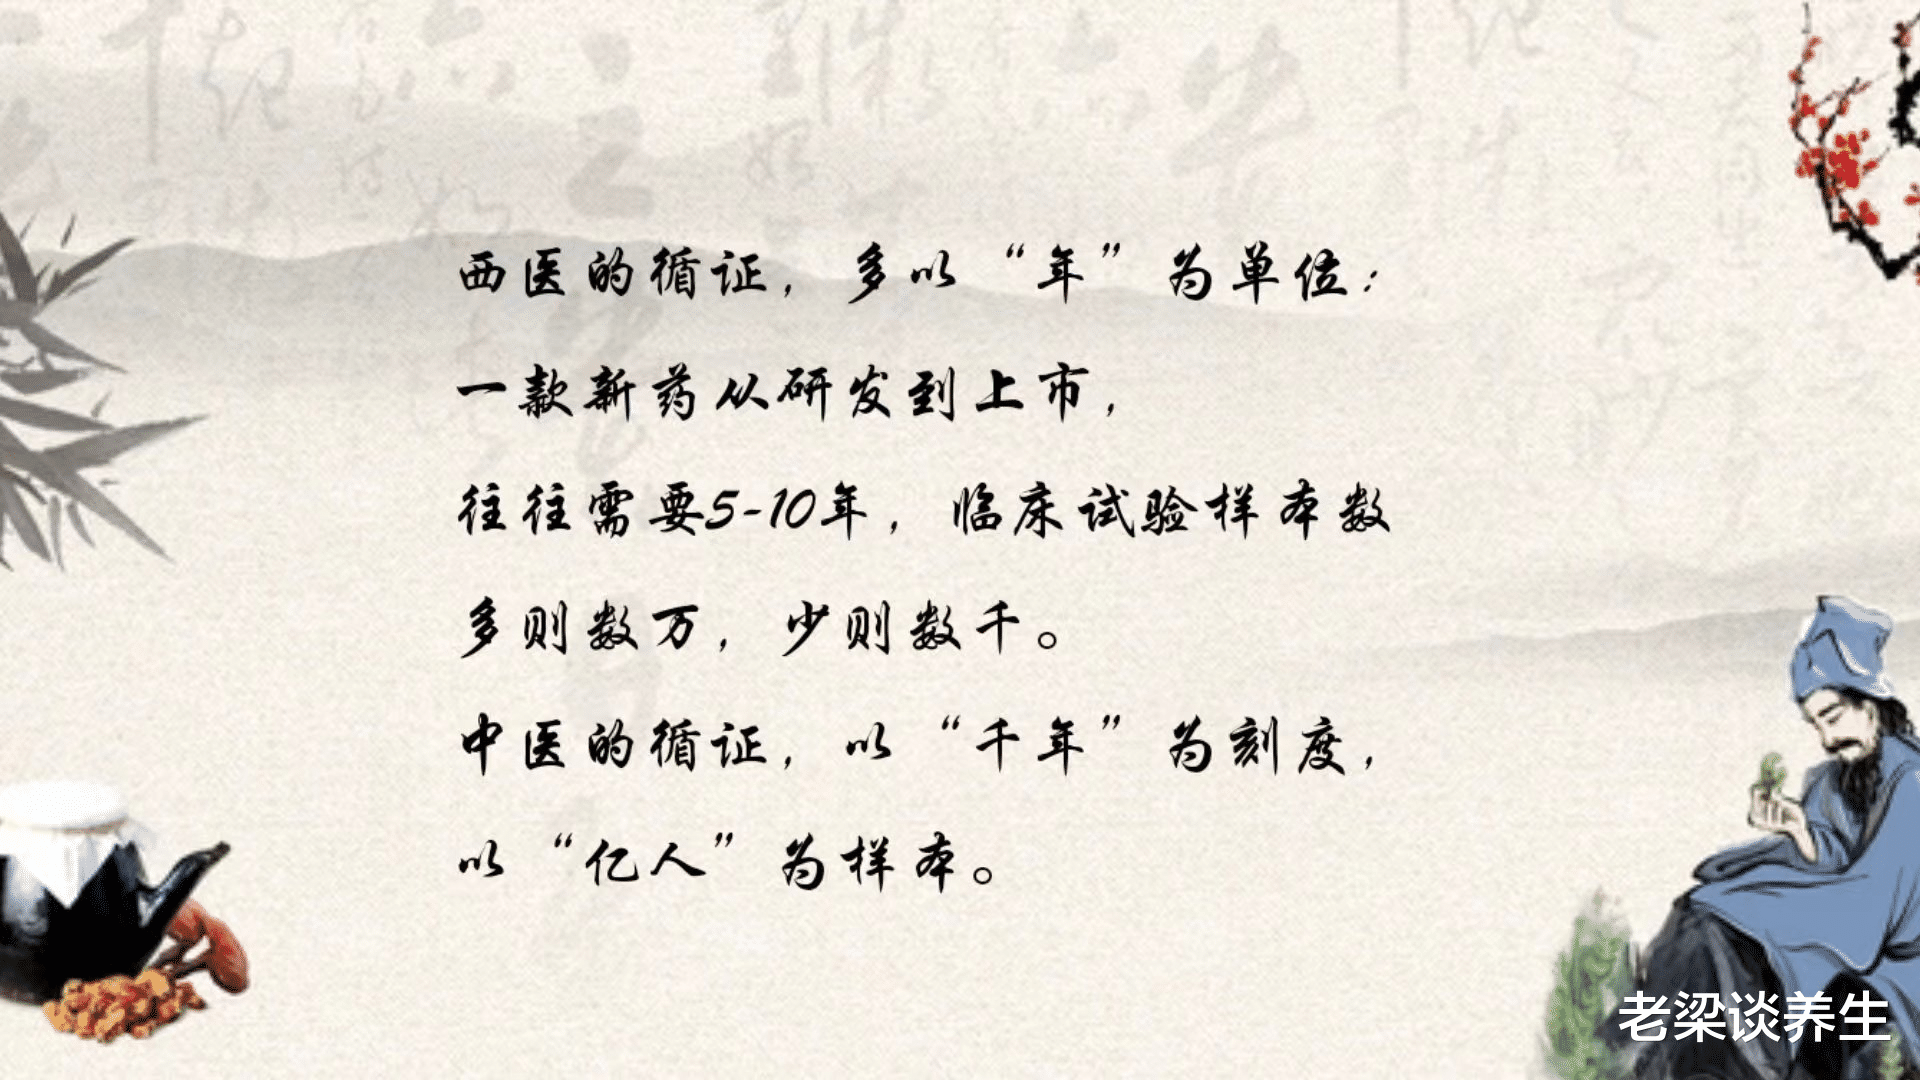 西医的循证，多以“年”为单位：
一款新药从研发到上市，
往往需要5-10年，临床试验样本数
多则数万，少则数千。
中医的循证，以“千年”为刻度，
以“亿人”为样本。
老梁谈养生